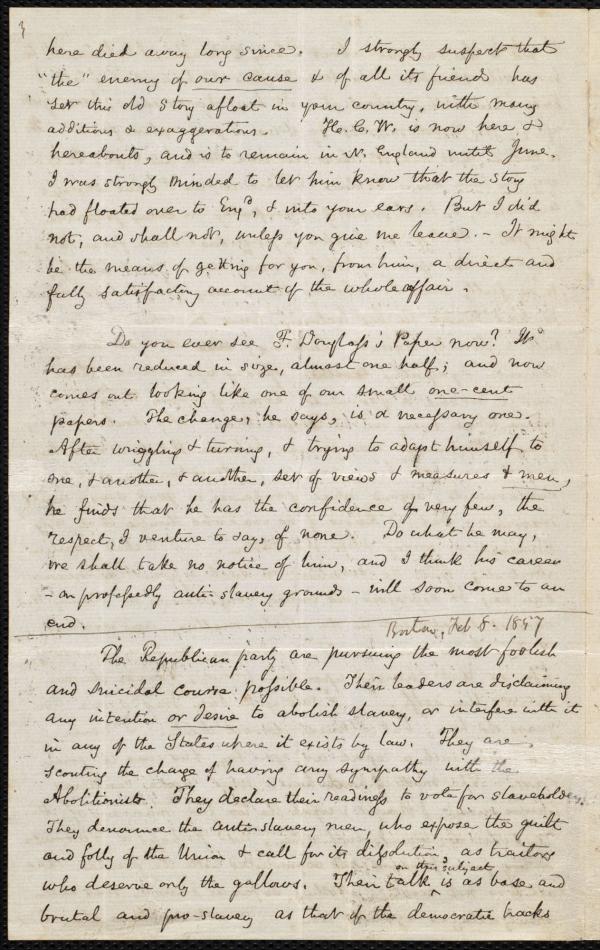 3
here died away long since. I strongly suspect that
"the" enemy of our cause & of all its friends has
set this old story afloat in your country, with many
additions & exaggerations. H. C. W. is now here &
hereabouts, and is to remain in N. England until June.
I was strongly minded to let him know that the story
had floated over to Engd, & into your ears. But I did
not, and shall not, unless you give me leave. - It might
be the means of getting for you, from him, a direct and
fully satisfactory account of the whole affair.
Do you ever see F. Douglass's Paper now? It
has been reduced in size, almost one half; and now
comes out looking like one of our small one-cent
papers. The change, he says, is a necessary one.
After wriggling & turning, & trying to adapt himself to
one, & another, & another, set of views & measures & men,
he finds that he has the confidence of very few, the
respect, I venture to say, of none. Do what he may,
we shall take no notice of him, and I think his career
- on professedly anti-slavery grounds - will soon come to an
end.
Boston, Feb 8. 1857
The Republican party are pursuing the most foolish
and suicidal course possible. Their leaders are disclaiming
any intention or desire to abolish slavery, or interfere with it
in any of the States where it exists by law. They are
scouting the charge of having any sympathy with the
Abolitionists. They declare their readiness to vote for slaveholders.
They denounce the anti-slavery men, who expose the guilt
and folly of the Union & call for its dissolution, as traitors
on this subject
who deserve only the gallows. Their talk ^ is as base and
brutal and pro-slavery as that of the democratic hacks